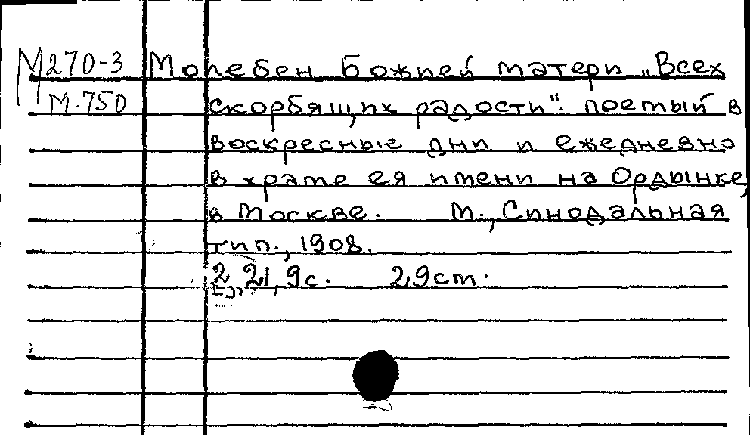 М270-3 Молебен Божией матери „Всех
М.750 скорбящих радости": поетый в
воскресные дни и ежедневно
в храме ея имени на Ордынке,
в Москве. М., Синодальная
тип., 1908.
2, 21, 9 с. 29 см.